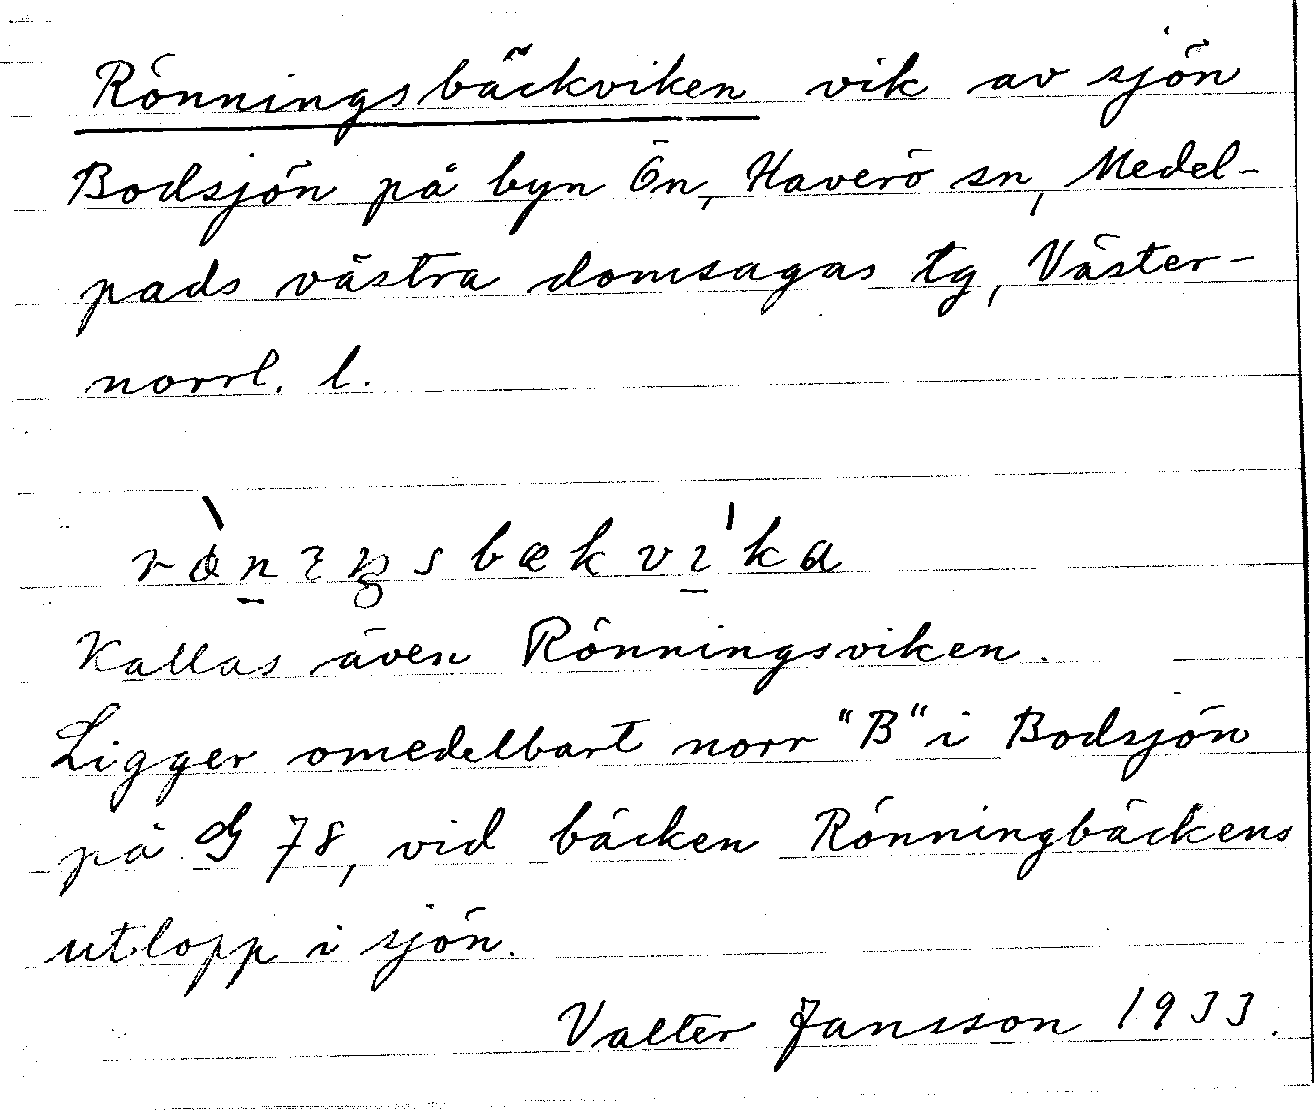 Rönningsbäckviken vik av sjön
Bodsjön på byn Ön, Haverö sn, Medel-
pads västra domsagas tg, Väster-
norrl. l.
Kallas även Rönningsviken.
Ligger omedelbart norr "B" i Bodsjön
på G 78, vid bäcken Rönningbäckens
utlopp i sjön.
Valter Jansson 1933.